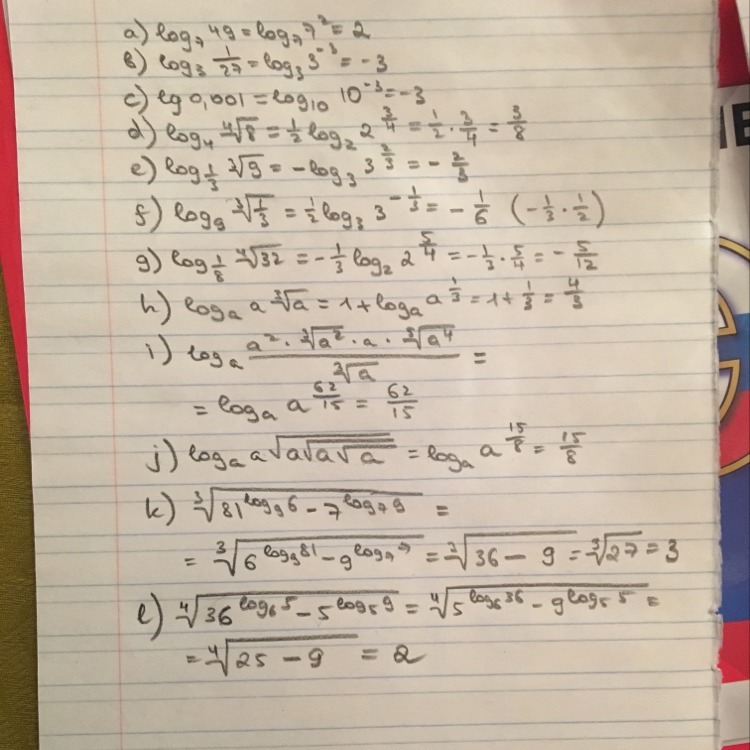 a) log₇ 49 = log₇ 7² = 2
b) log₃ 1/27 = log₃ 3⁻³ = -3
c) lg 0,001 = log₁₀ 10⁻³ = -3
d) log₄ ⁴√8 = 1/2 log₂ 2^(3/4) = 1/2 · 3/4 = 3/8
e) log_(1/3) ³√9 = -log₃ 3^(2/3) = - 2/3
f) log₉ ³√(1/3) = 1/2 log₃ 3^(-1/3) = - 1/6 (- 1/3 · 1/2)
g) log_(1/8) ⁴√32 = - 1/3 log₂ 2^(5/4) = - 1/3 · 5/4 = - 5/12
h) logₐ a ³√a = 1 + logₐ a^(1/3) = 1 + 1/3 = 4/3
i) logₐ (a² · ³√a² · a · ⁵√a⁴)/(³√a) =
= logₐ a^(62/15) = 62/15
j) logₐ a√(a√(a√a)) = logₐ a^(15/8) = 15/8
k) ³√(81^(log₉ 6) - 7^(log₇ 9)) =
= ³√(6^(log₉ 81) - 9^(log₇ 7)) = ³√(36 - 9) = ³√27 = 3
l) ⁴√(36^(log₆ 5) - 5^(log₅ 9)) = ⁴√(5^(log₆ 36) - 9^(log₅ 5)) =
= ⁴√(25 - 9) = 2